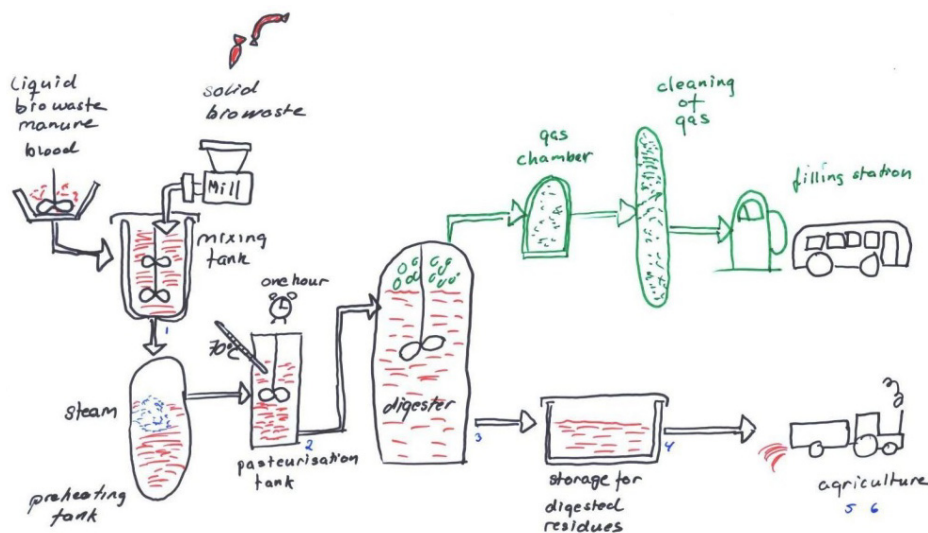 Liquid
biowaste
manure
blood
solid
biowaste
Mill
mixing
tank
1
steam
preheating
tank
one hour
70°C
2
pasteurisation
tank
digester
3
gas
chamber
cleaning
of
gas
filling station
storage for
digested
residues
4
agriculture
5 6